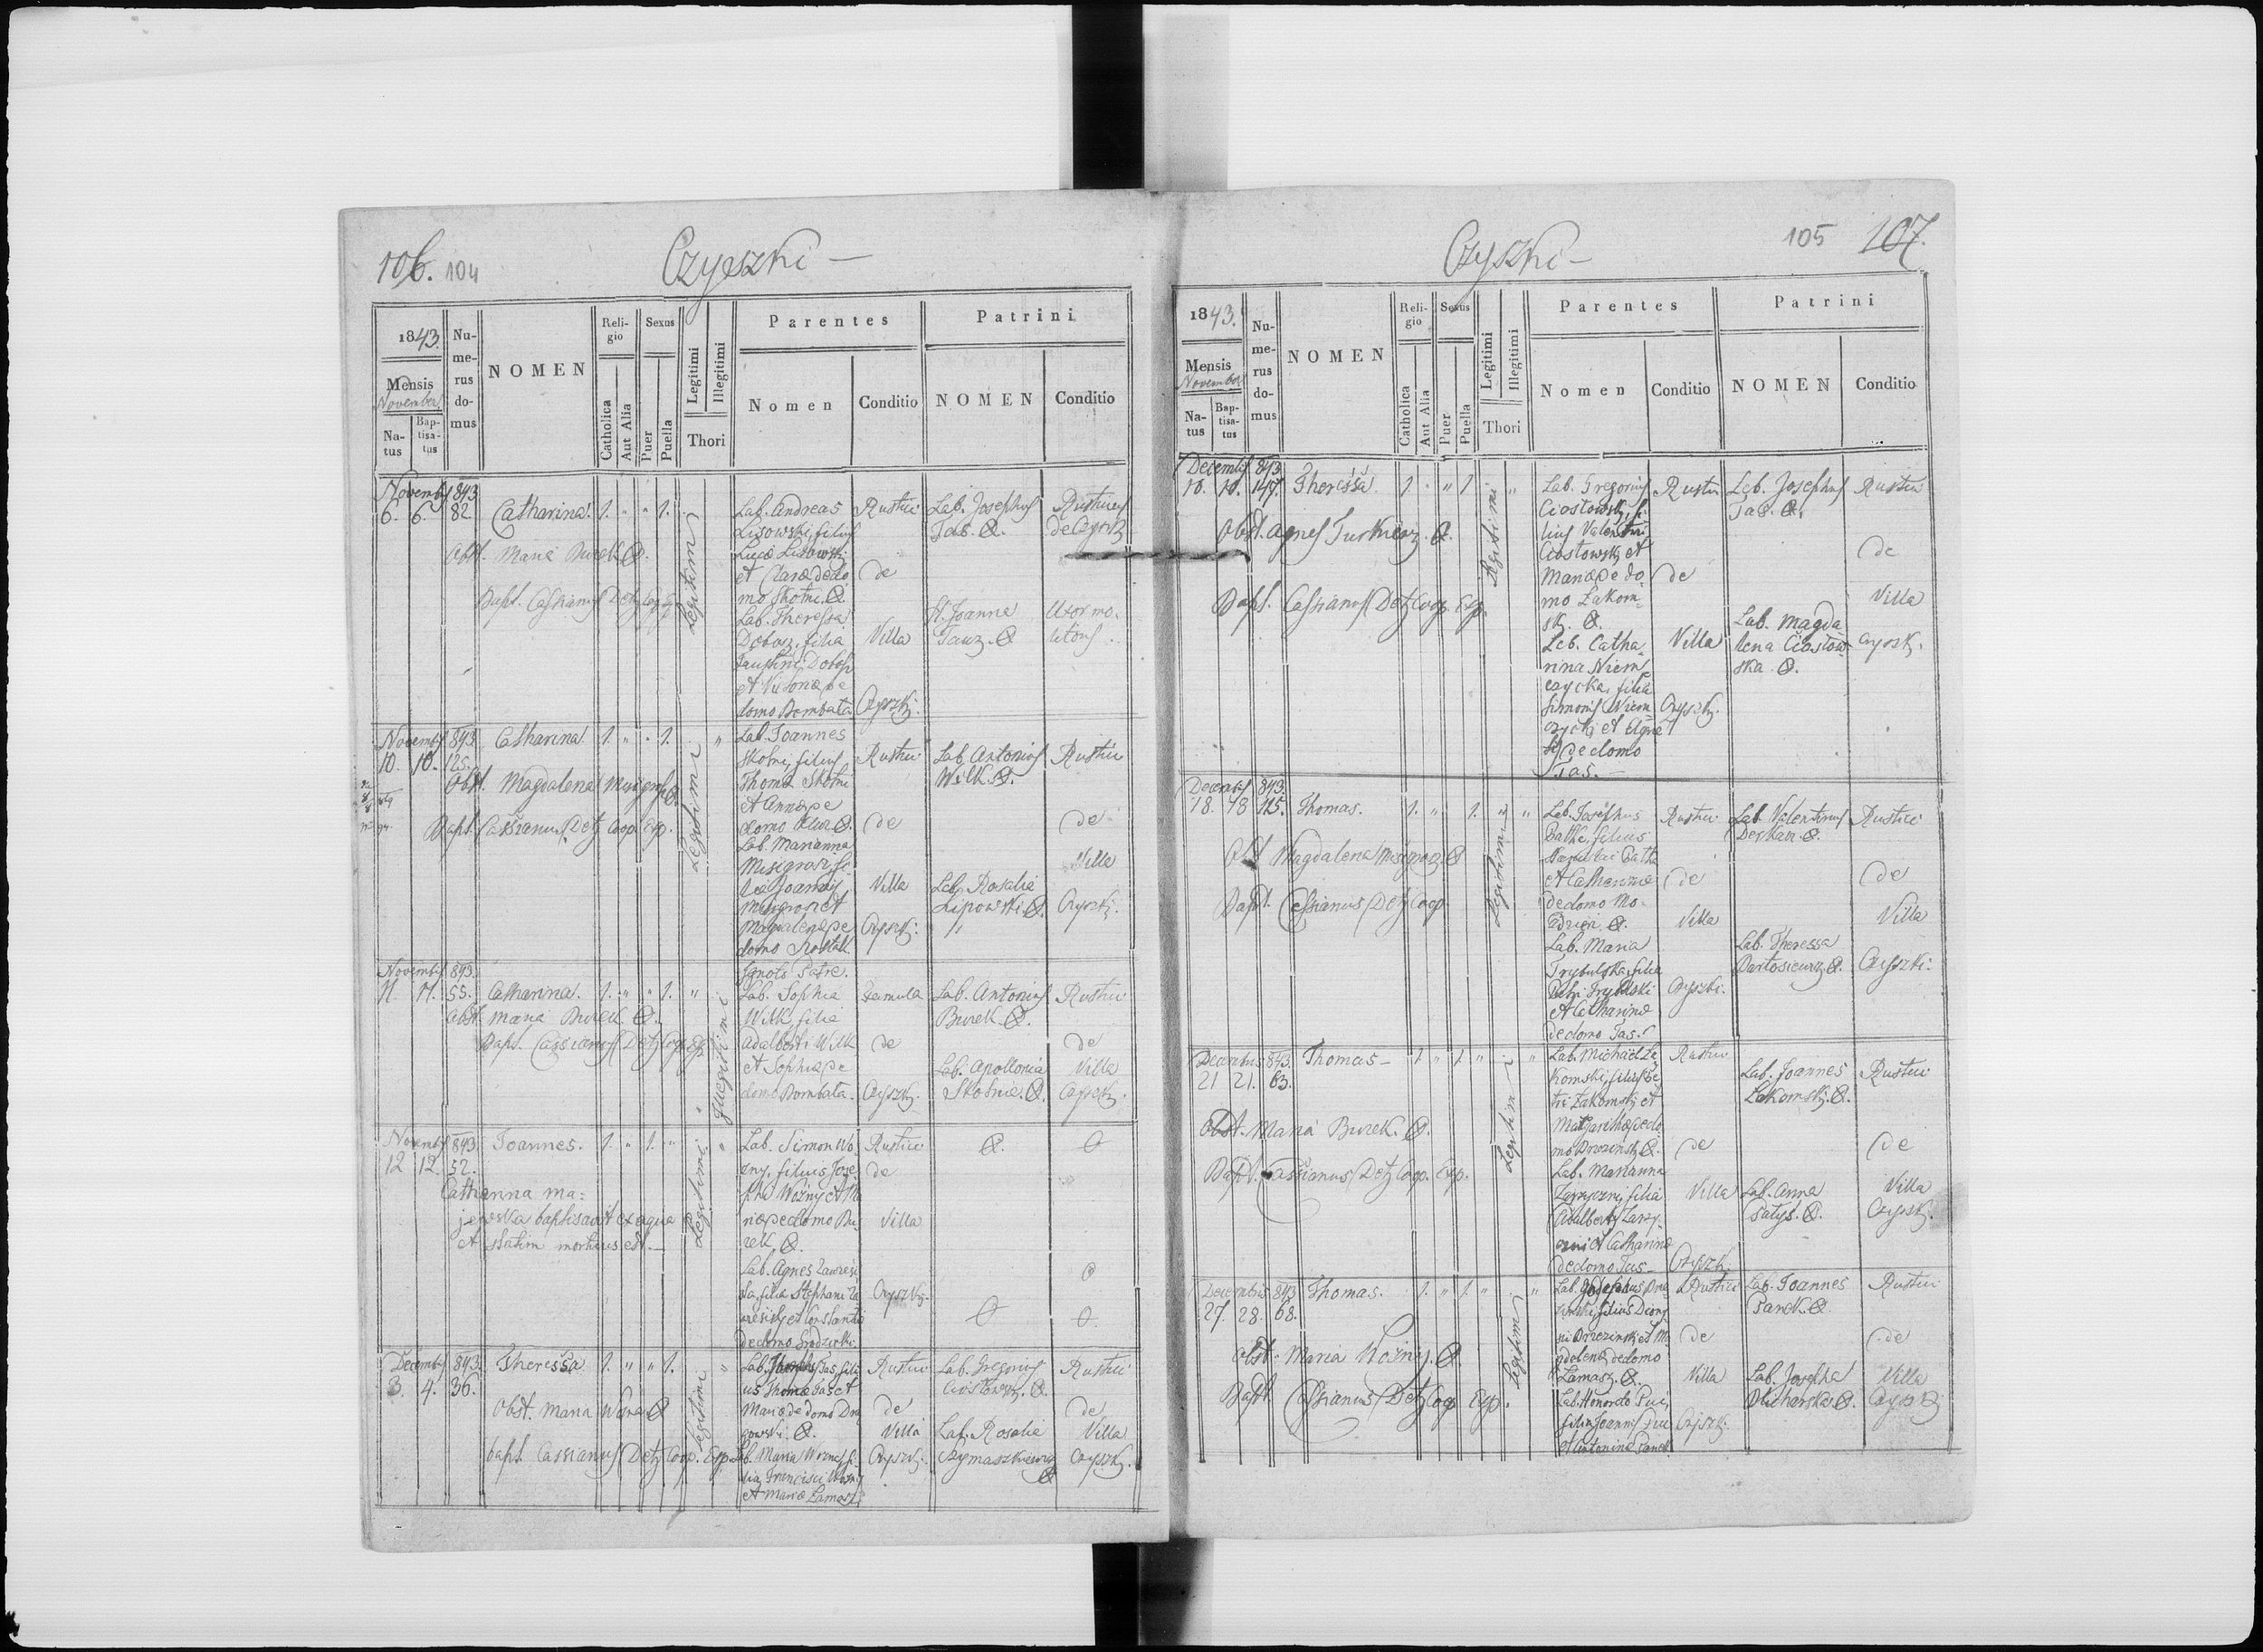 106. 104
Czyeszki —
1843.
Mensis
November
Natus
Baptisatus
Numerus domus
NOMEN
Religio
Catholica
Aut Alia
Sexus
Puer
Puella
Legitimi
Illegitimi
Thori
Parentes
Nomen
Conditio
Patrini
NOMEN
Conditio
Novemb 843
6. 6. 82
Catharina. 1. " " 1.
Obst. Maria Burek
Bapt. Cassianus Detz Coop. Exp.
Legitimi
Lab. Andreas
Lisowski, filius
Lucæ Lisowski
et Claræ de do
mo Skotni.
Lab. Theressa
Dobosz, filia
Faustini Dobosz
domo Bombata
Rustici
de
Villa
Czyszki.
Lab. Josephus
Tas.
Joanna
Tauz.
Rusticus
de Czyszk
Uxor mo
litoris
Novemb 843
10. 10. 125.
Catharina 1. " " 1. "
Obst. Magdalena Misigrosz
Bapt. Cassianus Detz Coop. Exp.
Legitimi
Lab. Joannes
Skotni, filius
Thomæ Skotni
et Annæ de
domo
Lab. Marianna
Misigrosz fi
lia Joannis
Misigrosz et
Magdalenæ de
domo
Rustici
de
Villa
Czyszki.
Lab. Antonius
Wilk.
Lab. Rosalia
Lipowski.
Rustici
de
Villa
Czyszki.
Novemb 843.
11. 11. 55.
Catharina. 1. " " 1. "
Obst. Maria Burek.
Bapt. Cassianus Detz Coop. Exp.
Illegitimi
Ignoto Patre.
Lab. Sophia
Wilk, filia
Adalberti Wilk
et Sophiæ de
domo Bombata.
Famula
de
Czyszki.
Lab. Antonius
Burek.
Lab. Apollonia
Skotnia.
Rustici
de
Villa
Czyszki.
Novemb 843.
12. 12. 52.
Joannes. 1. " 1. " "
Catharina Ma=
jewska baptisavit ex aqua
et statim mortuus est. —
Legitimi.
Lab. Simon Wo
zny, filius Jose
phi Wozny et Ma
riæ de domo Bu
rek
Lab. Agnes
filia Stephani
Rustici
de
Villa
Czyszki.
Decemb 843.
3. 4. 36.
Theressa 1. " " 1. "
Obst. Maria
Bapt. Cassianus Detz Coop. Exp.
Legitimi
Lab. Josephus Tas, fili
us Thomæ Tas et
Mariæ de domo
Lab. Maria Wozny, fi
lia Francisci Wozny
et Mariæ Lamasz
Rustici
de
Villa
Czyszki.
Lab. Gregorius
Ciostowski.
Lab. Rosalia
Szymaszkiewicz
Rustici
de
Villa
Czyszki.
Czyszki —
105 107.
1843.
Mensis
November
Natus
Baptisatus
Numerus domus
NOMEN
Religio
Catholica
Aut Alia
Sexus
Puer
Puella
Legitimi
Illegitimi
Thori
Parentes
Nomen
Conditio
Patrini
NOMEN
Conditio
Decemb 843
10. 10. 147.
Theressa 1. " " 1 "
Obst. Agnes Turkiewicz.
Bapt. Cassianus Detz Coop. Exp.
Legitimi
Lab. Gregorius
Ciostowski, fi
lius Valentini
Ciostowski et
Mariæ de do
mo Zakom
ski.
Lab. Catha
rina Niem
czycka, filia
Simonis Niem
czycki et Agne
tis de domo
Tas. —
Rustici
de
Villa
Czyszki.
Lab. Josephus
Tas.
Lab. Magda
lena Ciostow
ska.
Rustici
de
Villa
Czyszki.
Decemb 843.
18. 18 115.
Thomas. 1. " 1. " "
Obst Magdalena Misigrosz
Bapt. Cassianus Detz Coop
Legitimi
Lab. Josephus
filius
et Catharinæ
de domo Mo
Lab. Maria
Trybulska, filia
Trybulski
et Catharinæ
de domo Tas.
Rustici
de
Villa
Czyszki.
Lab. Valentinus
Lab. Theressa
Bartosiewicz.
Rustici
de
Villa
Czyszki.
Decembris 843.
21 21. 63.
Thomas — 1 " 1. " "
Obst. Maria Burek.
Bapt. Cassianus Detz Coop. Exp.
Legitimi
Lab. Michael Za
komski, filius Pe
tri Zakomski et
Margarithæ de do
mo Brzezinski
Lab. Marianna
filia
Adalberti
et Catharinæ
de domo Tas —
Rustici
de
Villa
Czyszki.
Lab. Joannes
Zakomski.
Lab. Anna
Patys.
Rustici
de
Villa
Czyszki.
Decembris 843
27. 28. 68.
Thomas. 1. " 1. " "
Obst. Maria Wozny.
Bapt Cassianus Detz Coop Exp.
Legitimi
Lab. Josephus Brze
zinski, filius Diony
sii Brzezinski et Ma
gdalenæ de domo
Lamasz.
Lab. Honorata
filia Joannis
et Antoninæ Panek
Rustici
de
Villa
Czyszki.
Lab. Joannes
Panek.
Lab. Josepha
Rustici
de
Villa
Czyszki